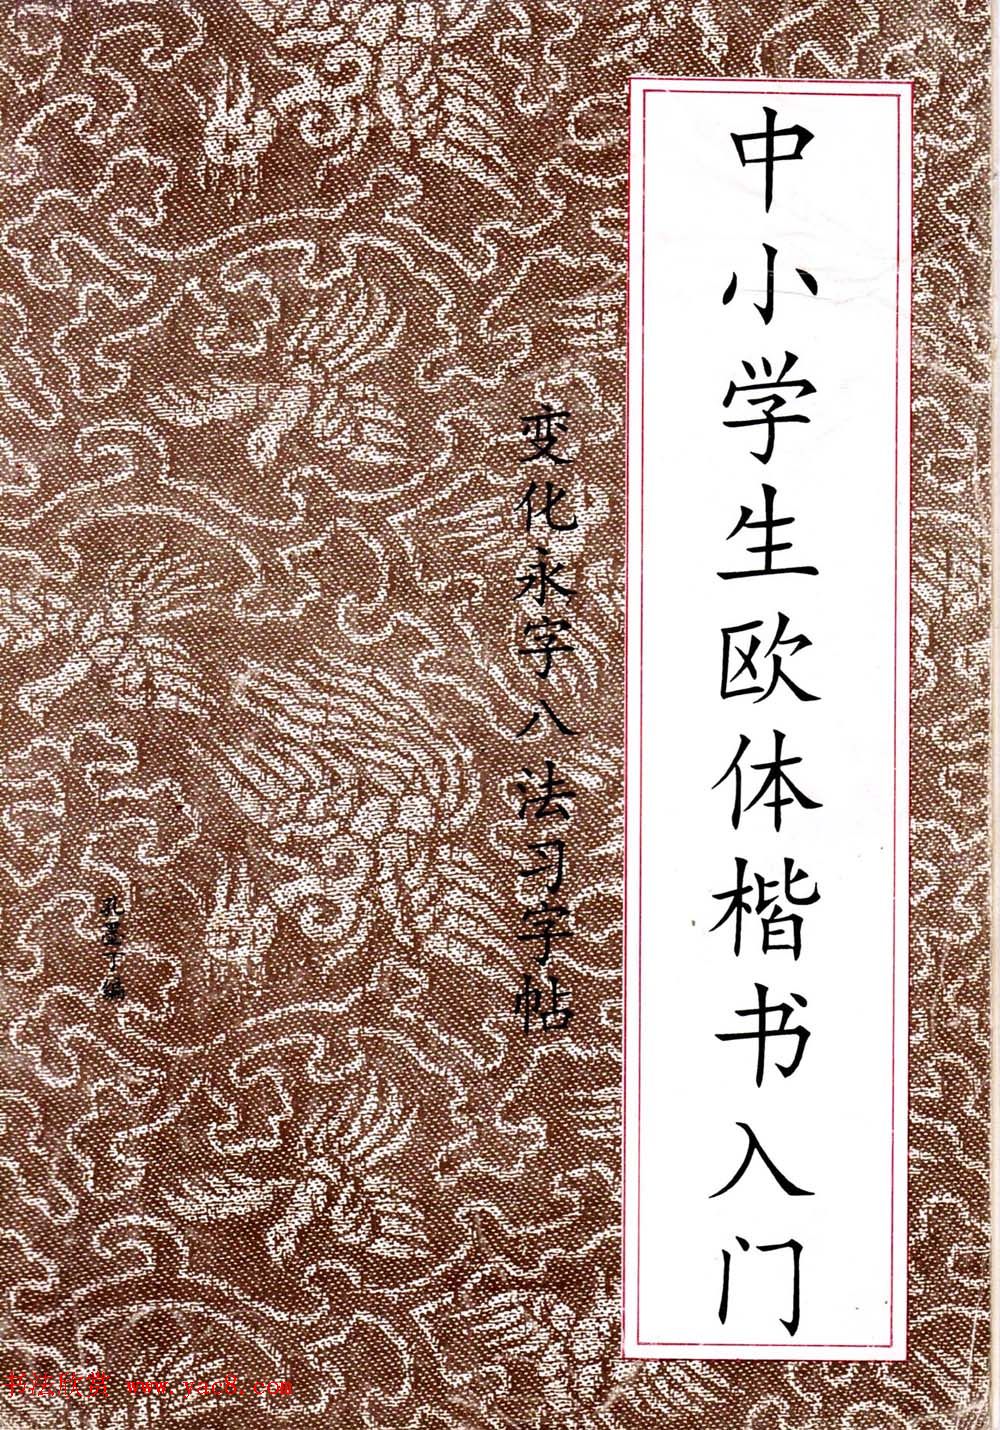 中小学生欧体楷书入门
变化永字八法习字帖
孔墨丁编
书法欣赏 www.yac8.com